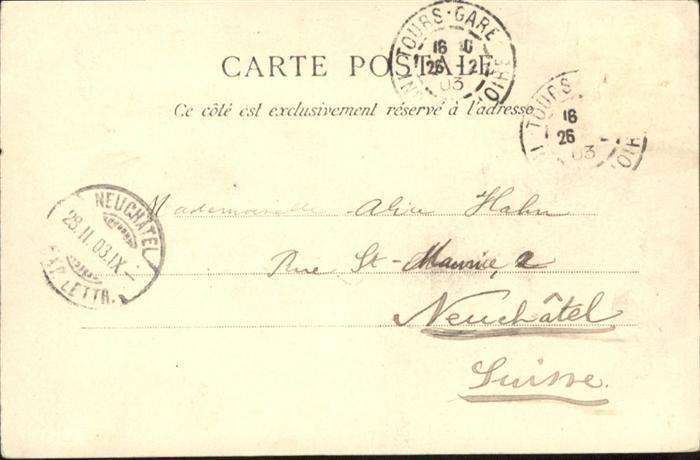 TOURS-GARE
16
26 - 2
03
CARTE POSTALE
Ce côté est exclusivement réservé à l'adresse
TOURS
16
26 -
03
NEUCHATEL
28.II.03.IX-
EXP. LETTR.
Mademoiselle Alice Hahn
Rue St-Maurice, 2
Neuchâtel
Suisse.